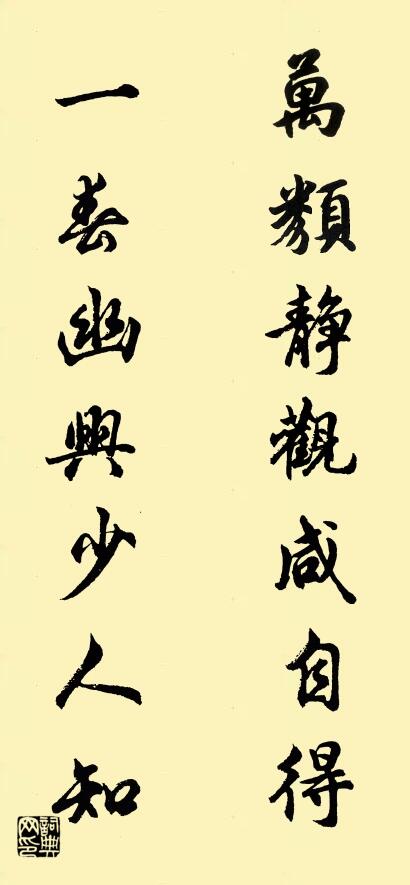 萬類静觀咸自得
一春幽興少人知
詞典網印